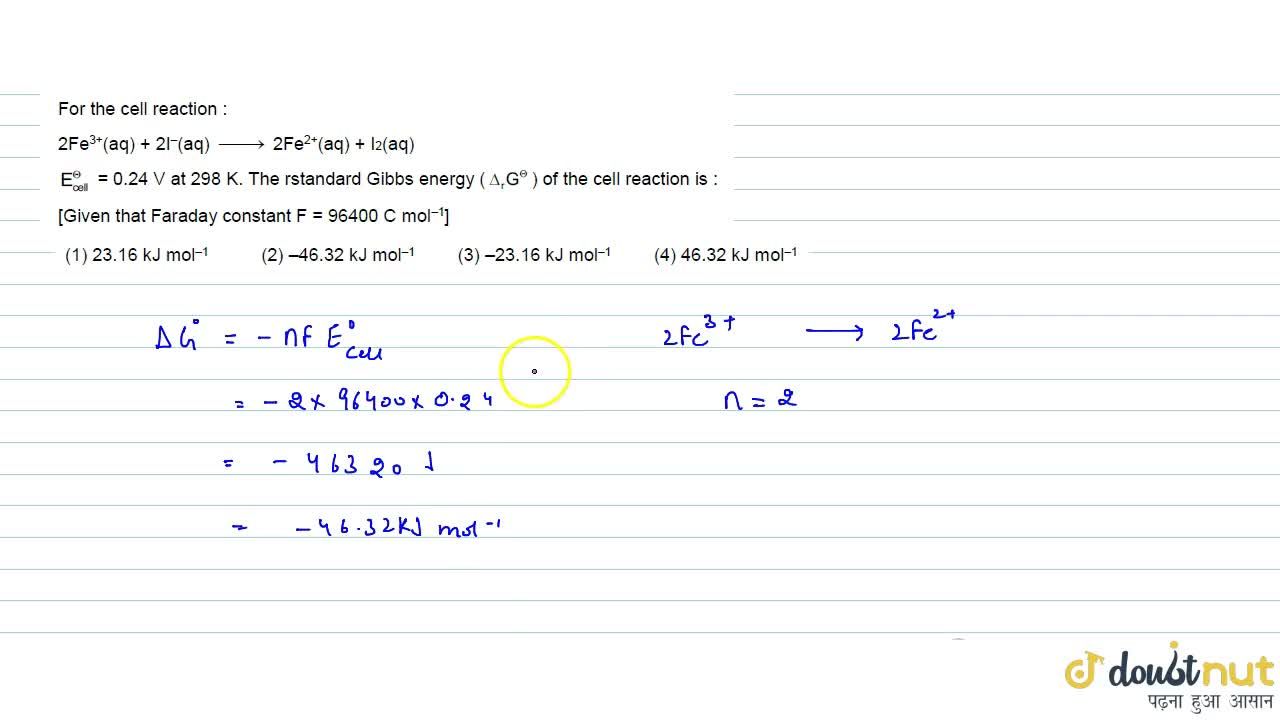 For the cell reaction :
2Fe³⁺(aq) + 2I⁻(aq) ⟶ 2Fe²⁺(aq) + I₂(aq)
E⊖cell = 0.24 V at 298 K. The rstandard Gibbs energy ( ΔᵣG⊖ ) of the cell reaction is :
[Given that Faraday constant F = 96400 C mol⁻¹]
(1) 23.16 kJ mol⁻¹ (2) –46.32 kJ mol⁻¹ (3) –23.16 kJ mol⁻¹ (4) 46.32 kJ mol⁻¹
ΔG° = - nF E°cell 2Fe³⁺ ⟶ 2Fe²⁺
= - 2 × 96400 × 0.24 n = 2
= - 46320 J
= - 46.32 KJ mol⁻¹
doubtnut
पढ़ना हुआ आसान